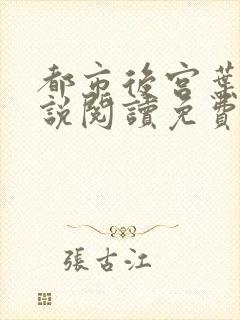 都市後宮葉
說閱讀免費
張古江